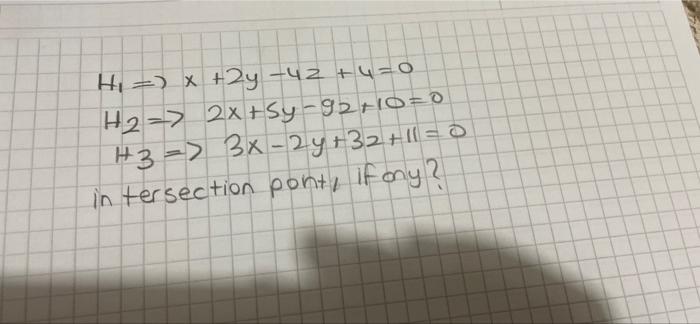 H₁ => x + 2y - 4z + 4 = 0
H2 => 2x + 5y - 9z + 10 = 0
H3 => 3x - 2y + 3z + 11 = 0
in tersection pont, if any?